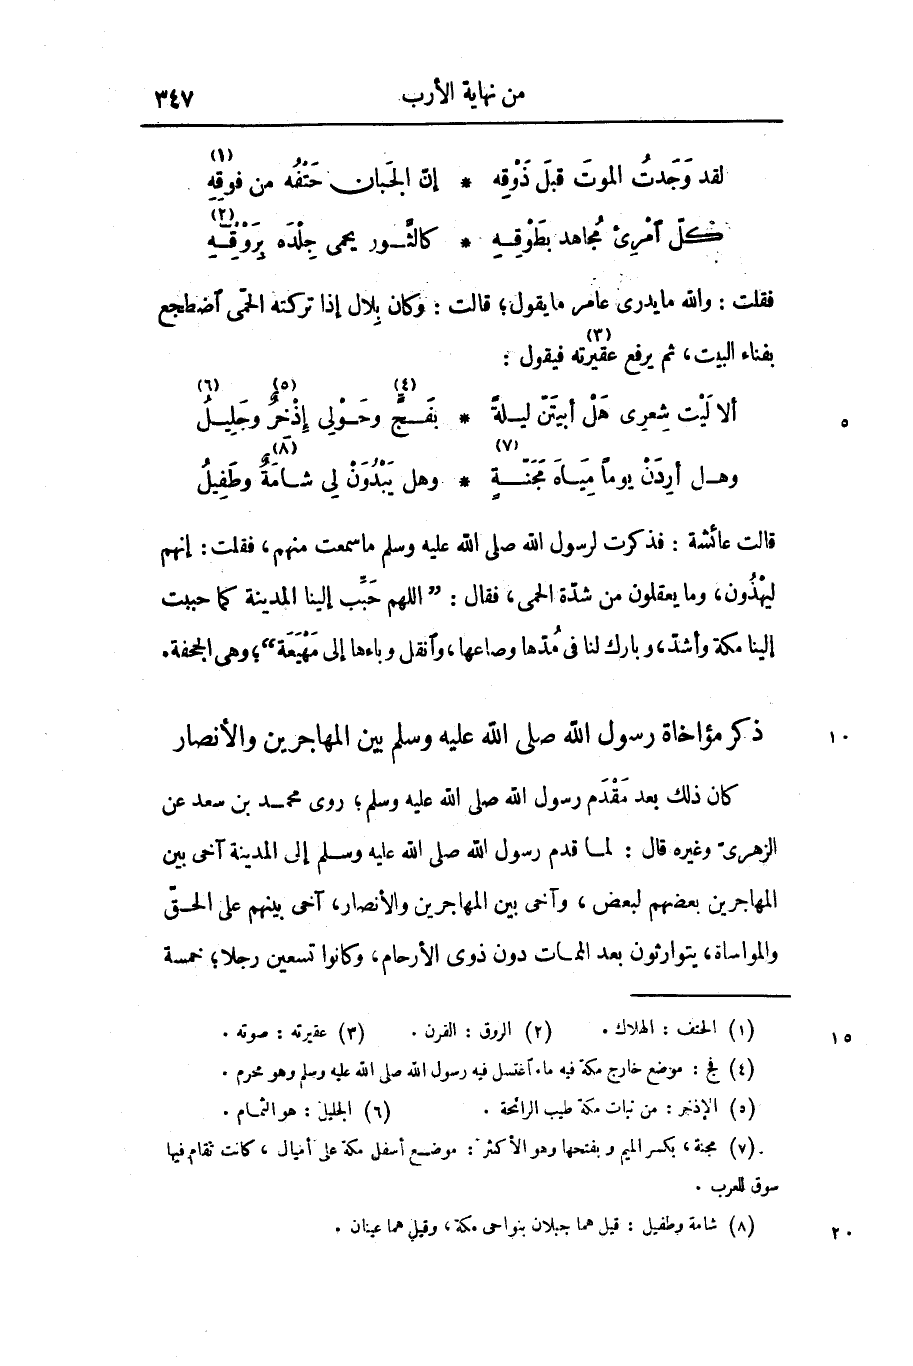 من نهاية الأرب ٣٤٧
لقد وَجَدتُ الموتَ قبلَ ذَوْقِه * إنّ الجَبان حَتْفُه من فوقِهِ (١)
كلّ آمْرِئ مُجاهد بطَوْقِـهِ * كالثَّـور يحمى جِلْدَه بِرَوْقِـهِ (٢)
فقلت : والله مايدرى عامر مايقول؛ قالت : وكان بِلال إذا تركته الحمّى آضطجع
بفناء البيت، ثم يرفع عقيرته (٣) فيقول :
ألا لَيْت شِعرى هَلْ أبيتَنّ ليـلةً * بفَـخٍّ (٤) وحَـوْلِى إذْخِرٌ (٥) وجَلِيـلُ (٦) ٥
وهـل أرِدَنْ يوماً مِيَـاهَ مَجَنّـةٍ (٧) * وهل يَبْدُوَنْ لِى شـامَةٌ (٨) وطَفِيلُ
قالت عائشة : فذكرت لرسول الله صلى الله عليه وسلم ماسمعت منهم، فقلت : إنهم
ليهْذُون، وما يعقلون من شدّة الحمى، فقال : ”اللهم حَبِّب إلينا المدينة كما حببت
إلينا مكة وأشدّ، وبارك لنا فى مُدّها وصاعها، وآنقل وباءها إلى مَهْيَعَة“؛ وهى الجحفة.
ذكر مؤاخاة رسول الله صلى الله عليه وسلم بين المهاجرين والأنصار ١٠
كان ذلك بعد مَقْدَم رسول الله صلى الله عليه وسلم؛ روى محمـد بن سعد عن
الزهرىّ وغيره قال : لمـا قدم رسول الله صلى الله عليه وسـلم إلى المدينة آخى بين
المهاجرين بعضهم لبعض، وآخى بين المهاجرين والأنصار، آخى بينهم على الحـقّ
والمواساة، يتوارثون بعد الممـات دون ذوى الأرحام، وكانوا تسعين رجلا؛ خمسة
(١) الحتف : الهلاك . (٢) الروق : القرن . (٣) عقيرته : صوته . ١٥
(٤) فخ : موضع خارج مكة فيه ماء آغتسل فيه رسول الله صلى الله عليه وسلم وهو محرم .
(٥) الإذخر : من نبات مكة طيب الرائحة . (٦) الجليل : هو الثمام .
(٧) مجنة، بكسر الميم وبفتحها وهو الأكثر : موضـع أسفل مكة على أميال، كانت تقام فيها
سوق للعرب .
(٨) شامة وطفيل : قيل هما جبلان بنواحى مكة، وقيل هما عينان . ٢٠